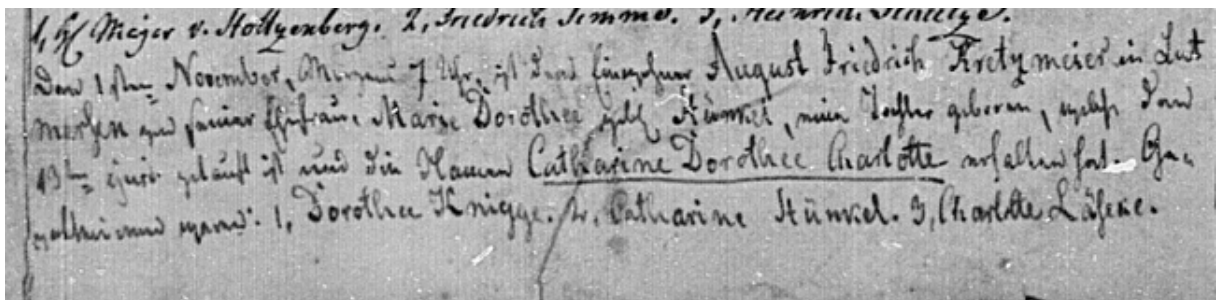 1, H Meijer v. Holtzenberg. 2, Friedrich Temme. 3, Heinrich Schulze.
Den 1sten November, Morgens 7 Uhr, ist dem Einwohner August Friedrich Kretzmeier in Lut
mersen und seiner Ehefrau, Marie Dorothee geb Hünkel, eine Tochter geboren, welche den
13ten ejusd. getauft ist und die Namen Catharine Dorothee Charlotte erhalten hat. Ge-
vatterinnen waren: 1, Dorothee Knigge. 2, Catharine Hünkel. 3, Charlotte Läseke.